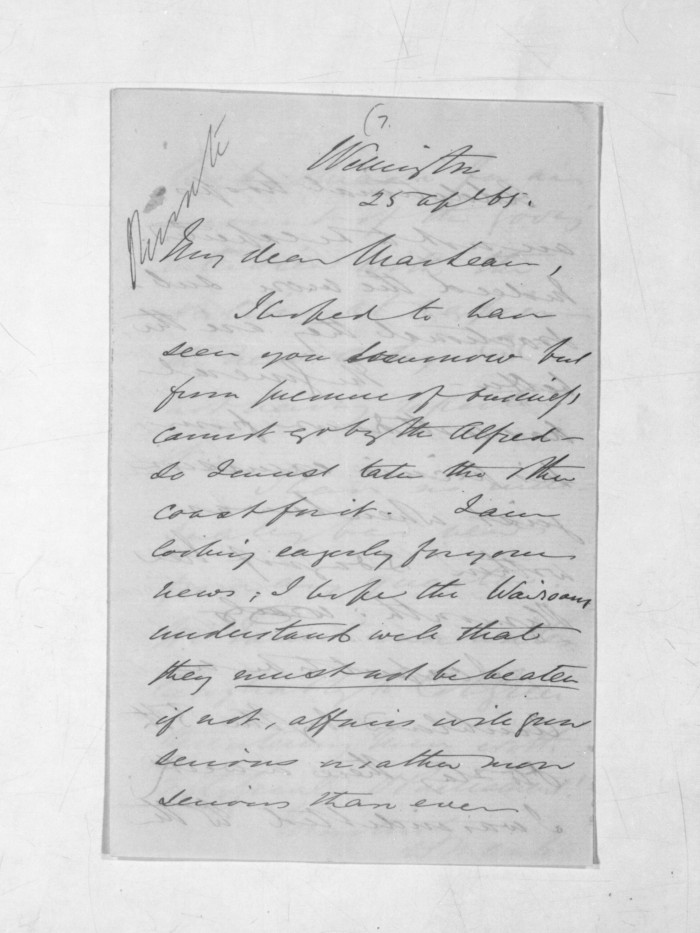 Private
Wellington
25 Apl 65.
My dear MacLean,
I hoped to have
seen you tomorrow but
from pressure of business
cannot go by the Alfred -
so I must take the other
coast for it. I am
looking eagerly for your
news; I hope the Wairoans
understand well that
they must not be beaten
if not, affairs will grow
serious or rather more
serious than ever